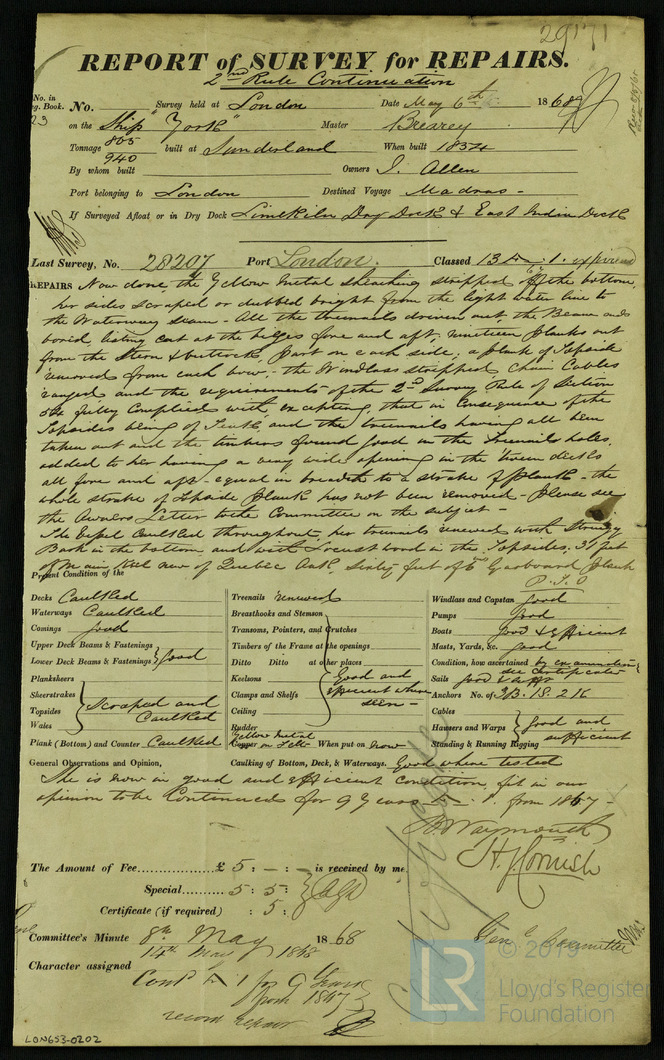 29171
REPORT of SURVEY for REPAIRS.
2nd Rule Continuation
No. in Reg. Book. No. Survey held at London Date May 6th 1868
23 on the Ship "York" Master
Tonnage 805 940 built at Sunderland When built 1834
By whom built Owners J. Allen
Port belonging to London Destined Voyage Madras -
If Surveyed Afloat or in Dry Dock Limekiln Dry Dock & East India Dock
Last Survey, No. 28207 Port London. Classed 13 A. 1. expired
REPAIRS Now done, the Yellow Metal sheathing stripped off the bottom,
her sides scraped or dubbed bright from the light water line to
the Waterway seam - All the treenails driven out, the Beam ends
bored, listing cut at the bilges fore and aft, nineteen planks out
from the Stern & buttocks, part on each side; a plank of Topside
removed from each bow, - the Windlass stripped, Chain Cables
ranged and the requirements of the 2nd Survey Rule of Section
fully Complied with, excepting, that in Consequence of the
Topsides being of Teak, and the treenails having all been
taken out and the timbers found good in the treenails holes,
added to her having a very wide opening in the tween decks
all fore and aft - equal in breadth to a strake of plank - the
whole strake of Topside plank has not been removed - please see
the Owners Letter to the Committee on the subject -
Caulked throughout, her treenails renewed with
in the bottom, and with Locust wood in the Topsides. 37 feet
of Main Keel new of Quebec Oak, Sixty feet of Garboard plank
P.T.O
Present Condition of the
Decks Caulked
Waterways Caulked
Comings good
Upper Deck Beams & Fastenings
Lower Deck Beams & Fastenings } good
Planksheers
Sheerstrakes
Topsides
Wales } Scraped and Caulked
Plank (Bottom) and Counter Caulked
Treenails renewed
Breasthooks and Stemson
Transoms, Pointers, and Crutches
Timbers of the Frame at the openings
Ditto Ditto at other places
Keelsons
Clamps and Shelfs
Ceiling
Rudder } Good and efficient where seen -
Yellow Metal
Copper on Felt When put on now
Caulking of Bottom, Deck, & Waterways. Good where tested
Windlass and Capstan good
Pumps good
Boats good & efficient
Masts, Yards, &c. good
Condition, how ascertained by examination &
Sails good &
Anchors No. of 3B. 1S. 2K
Cables
Hausers and Warps
Standing & Running Rigging } good and sufficient
General Observations and Opinion,
She is now in good and efficient Condition, fit in our
opinion to be Continued for 9 Years A. 1. from 1867 -
Waymouth
H. J. Cornish
The Amount of Fee £ 5 : - : - is received by me,
Special 5 : 5 :
Certificate (if required) : 5 :
Committee's Minute 8th May 1868
14th May 1868
Character assigned Contd A 1 for 9 Years
from 1867
record repair
Genl Committee
© 2019
LR
Lloyd's Register
Foundation
LON653-0202